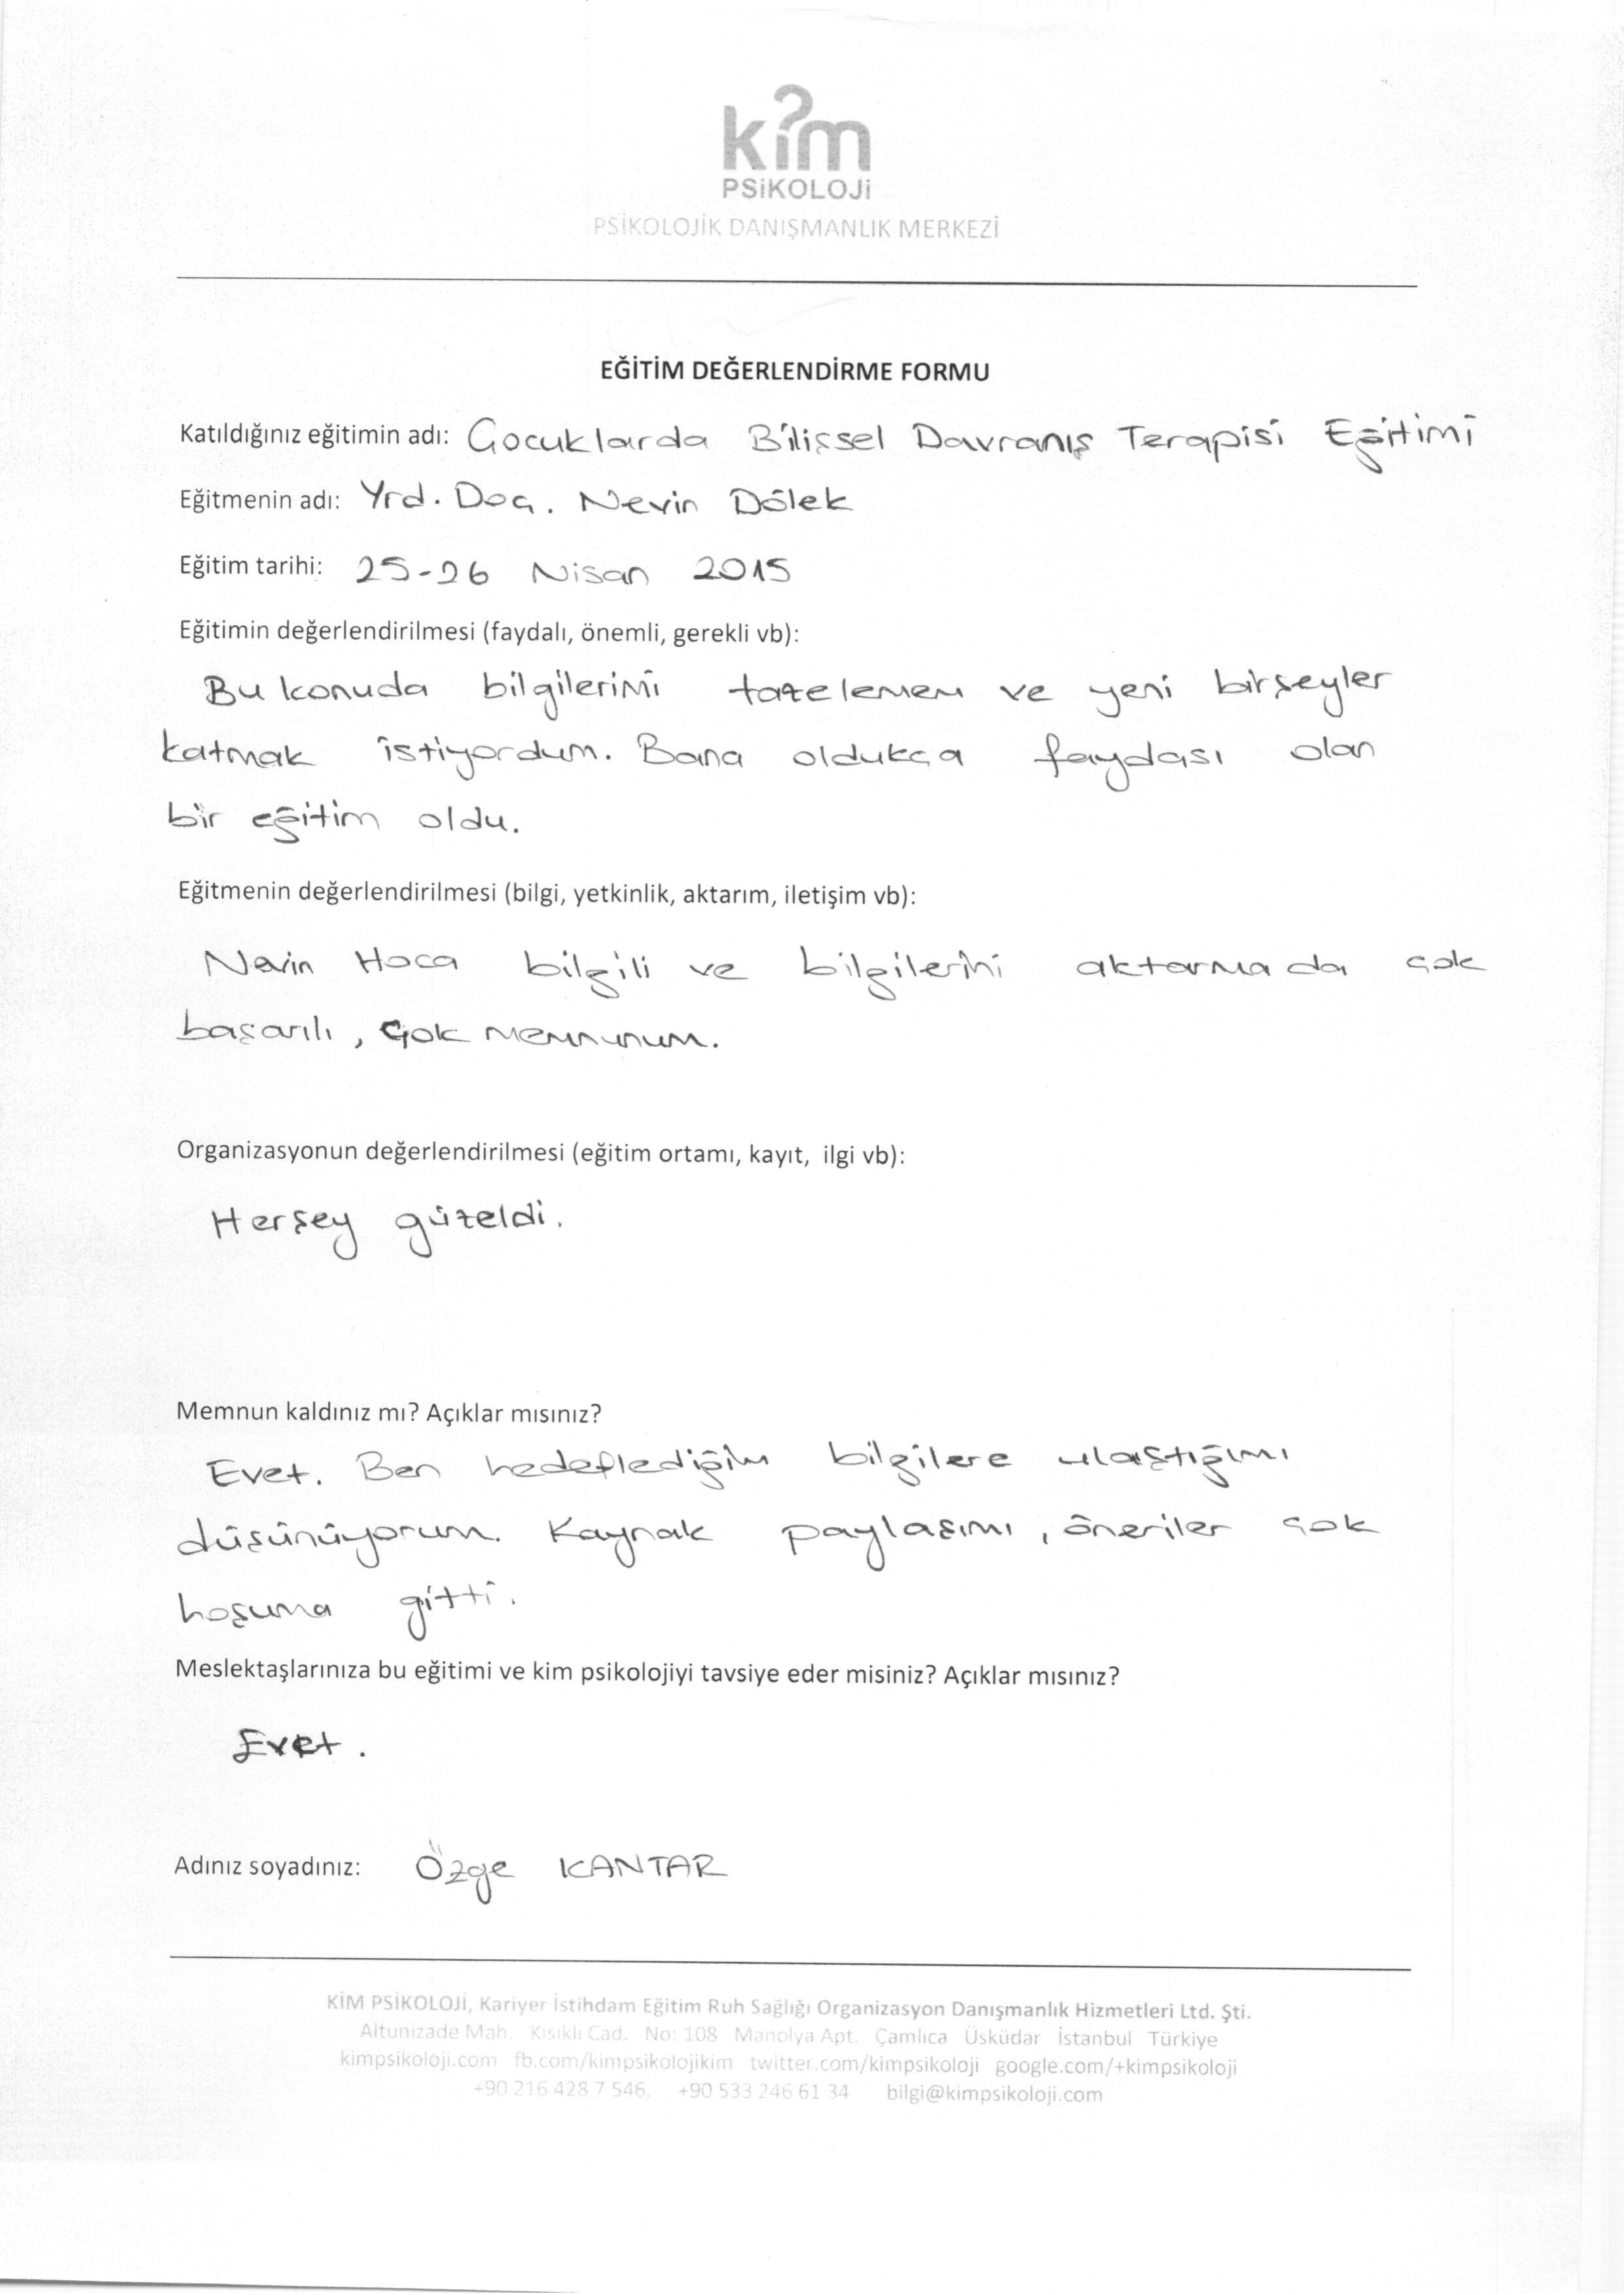 kim
PSiKOLOJi
PSİKOLOJİK DANIŞMANLIK MERKEZİ
EĞİTİM DEĞERLENDİRME FORMU
Katıldığınız eğitimin adı: Çocuklarda Bilişsel Davranış Terapisi Eğitimi
Eğitmenin adı: Yrd. Doç. Nevin Dölek
Eğitim tarihi: 25-26 Nisan 2015
Eğitimin değerlendirilmesi (faydalı, önemli, gerekli vb):
Bu konuda bilgilerimi tazelemem ve yeni birşeyler
katmak istiyordum. Bana oldukça faydası olan
bir eğitim oldu.
Eğitmenin değerlendirilmesi (bilgi, yetkinlik, aktarım, iletişim vb):
Nevin Hoca bilgili ve bilgilerini aktarmada çok
başarılı, Çok memnunum.
Organizasyonun değerlendirilmesi (eğitim ortamı, kayıt, ilgi vb):
Herşey güzeldi.
Memnun kaldınız mı? Açıklar mısınız?
Evet. Ben hedeflediğim bilgilere ulaştığımı
düşünüyorum. Kaynak paylaşımı, öneriler çok
hoşuma gitti.
Meslektaşlarınıza bu eğitimi ve kim psikolojiyi tavsiye eder misiniz? Açıklar mısınız?
Evet.
Adınız soyadınız: Özge KANTAR
KİM PSİKOLOJİ, Kariyer İstihdam Eğitim Ruh Sağlığı Organizasyon Danışmanlık Hizmetleri Ltd. Şti.
Altunizade Mah. Kısıklı Cad. No: 108 Manolya Apt. Çamlıca Üsküdar İstanbul Türkiye
kimpsikoloji.com fb.com/kimpsikolojikim twitter.com/kimpsikoloji google.com/+kimpsikoloji
+90 216 428 7 546, +90 533 246 61 34 bilgi@kimpsikoloji.com